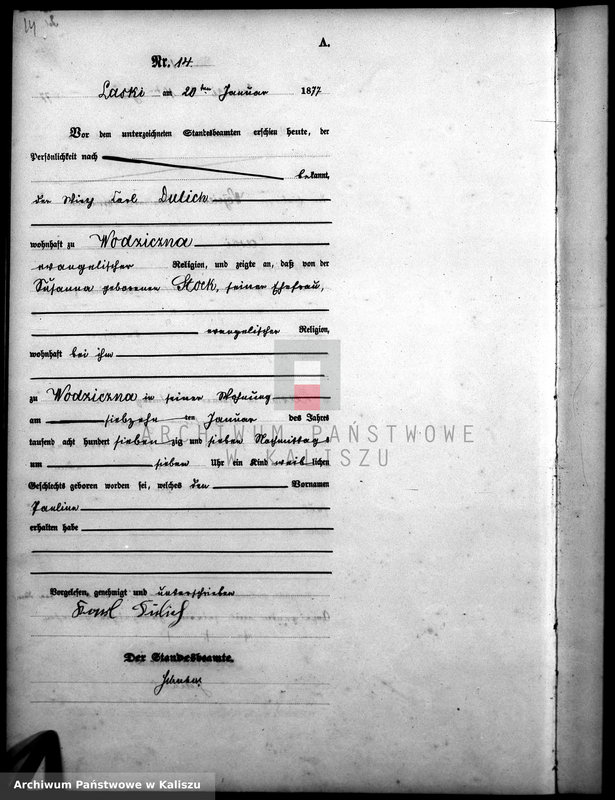 14
A.
Nr. 14.
Laski am 20ten Januar 1877
Vor dem unterzeichneten Standesbeamten erschien heute, der
Persönlichkeit nach
bekannt,
der Wirth Carl Dulich
wohnhaft zu Wodziczna
evangelischer Religion, und zeigte an, daß von der
Susanna geborenen Stock, seiner Ehefrau,
evangelischer Religion,
wohnhaft bei ihm
zu Wodziczna in seiner Wohnung
am siebzehn ten Januar des Jahres
tausend acht hundert sieben zig und sieben Nachmittags
um sieben Uhr ein Kind weiblichen
Geschlechts geboren worden sei, welches den Vornamen
Pauline
erhalten habe
Vorgelesen, genehmigt und unterschrieben
Karl
Der Standesbeamte.
ARCHIWUM PAŃSTWOWE
W KALISZU
Archiwum Państwowe w Kaliszu